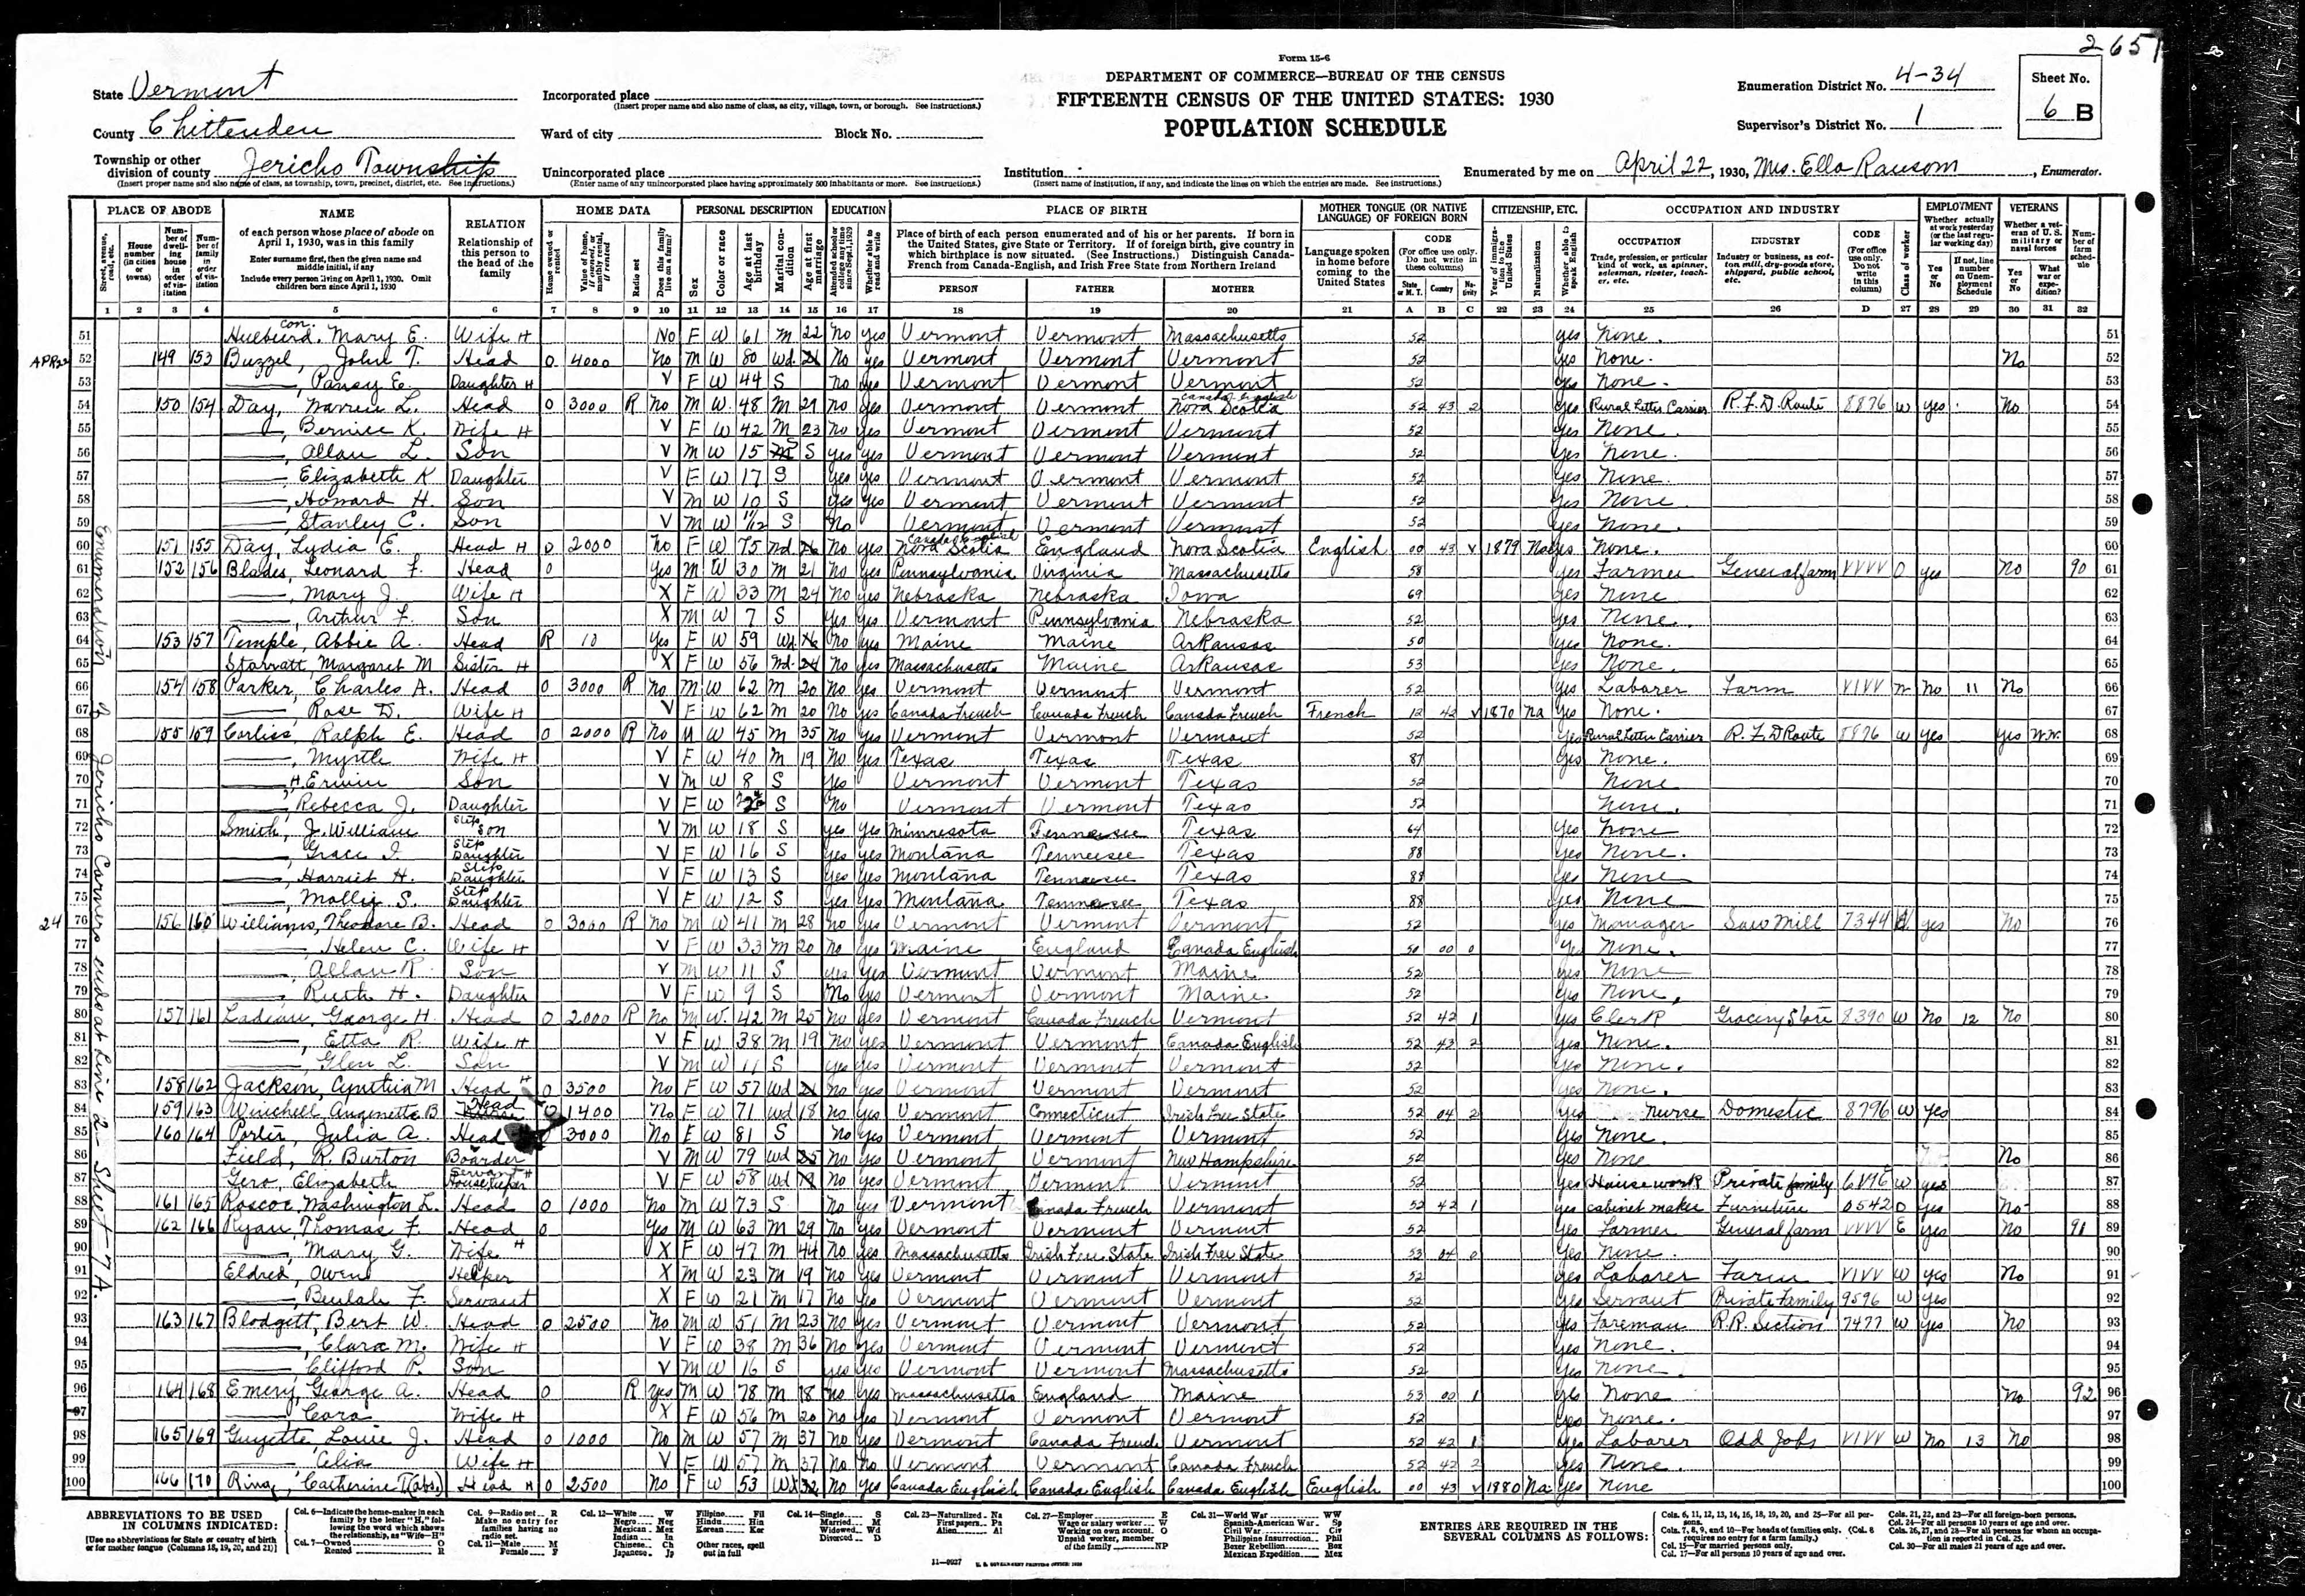 2651
Form 15-6
DEPARTMENT OF COMMERCE—BUREAU OF THE CENSUS
FIFTEENTH CENSUS OF THE UNITED STATES: 1930
POPULATION SCHEDULE
State Vermont
County Chittenden
Township or other division of county Jericho Township
(Insert proper name and also name of class, as township, town, precinct, district, etc. See instructions.)
Incorporated place
(Insert proper name and also name of class, as city, village, town, or borough. See instructions.)
Ward of city Block No.
Unincorporated place
(Enter name of any unincorporated place having approximately 500 inhabitants or more. See instructions.)
Institution
(Insert name of institution, if any, and indicate the lines on which the entries are made. See instructions.)
Enumeration District No. 4-34
Supervisor's District No. 1
Sheet No. 6 B
Enumerated by me on April 22, 1930, Mrs. Ella Ransom, Enumerator.
PLACE OF ABODE NAME RELATION HOME DATA PERSONAL DESCRIPTION EDUCATION PLACE OF BIRTH MOTHER TONGUE (OR NATIVE LANGUAGE) OF FOREIGN BORN CITIZENSHIP, ETC. OCCUPATION AND INDUSTRY EMPLOYMENT VETERANS
1 2 3 4 5 6 7 8 9 10 11 12 13 14 15 16 17 18 19 20 21 A B C 22 23 24 25 26 D 27 28 29 30 31 32
51 con. Mary E. Wife H No F W 61 M 22 No yes Vermont Vermont Massachusetts 52 yes None. 51
APR 22 52 149 153 Buzzel, John T. Head O 4000 No M W 80 Wd No yes Vermont Vermont Vermont 52 yes None. No 52
53 Pansy E. Daughter H V F W 44 S No yes Vermont Vermont Vermont 52 yes None. 53
54 150 154 Day, Warren L. Head O 3000 R No M W 48 M 21 No yes Vermont Vermont Canada English Nova Scotia 52 43 2 yes Rural Letter Carrier R.F.D. Route 8876 W yes No 54
55 Bernice K. Wife H V F W 42 M 23 No yes Vermont Vermont Vermont 52 yes None. 55
56 Allan L. Son V M W 15 S S yes yes Vermont Vermont Vermont 52 yes None. 56
57 Elizabeth K Daughter V F W 17 S yes yes Vermont Vermont Vermont 52 yes None. 57
58 Howard H. Son V M W 10 S yes yes Vermont Vermont Vermont 52 yes None 58
59 Stanley C. Son V M W 11/12 S No Vermont Vermont Vermont 52 yes None. 59
60 151 155 Day, Lydia E. Head H O 2000 No F W 75 Wd No yes Canada English Nova Scotia England Nova Scotia English 00 43 V 1879 Na yes None. 60
61 152 156 Blades, Leonard F. Head O Yes M W 30 M 21 No yes Pennsylvania Virginia Massachusetts 58 yes Farmer General farm VVVV O yes No 90 61
62 Mary J. Wife H X F W 33 M 24 No yes Nebraska Nebraska Iowa 69 yes None 62
63 Arthur F. Son X M W 7 S Yes Yes Vermont Pennsylvania Nebraska 52 yes None. 63
64 153 157 Temple, Abbie A. Head R 10 Yes F W 59 Wd. No yes Maine Maine Arkansas 50 yes None. 64
65 Starratt, Margaret M Sister H X F W 56 Wd. 24 No yes Massachusetts Maine Arkansas 53 yes None. 65
66 154 158 Parker, Charles A. Head O 3000 R No M W 62 M 20 No yes Vermont Vermont Vermont 52 yes Laborer Farm VIVV No 11 No 66
67 Rose D. Wife H V F W 62 M 20 No yes Canada French Canada French Canada French French 12 42 V 1870 Na yes None. 67
68 155 159 Corliss, Ralph E. Head O 2000 R No M W 45 M 35 No yes Vermont Vermont Vermont 52 yes Rural Letter Carrier R.F.D Route 8876 W yes yes W.W. 68
69 Myrtle Wife H V F W 40 M 19 No yes Texas Texas Texas 87 yes None. 69
70 H. Erwin Son V M W 8 S yes Vermont Vermont Texas 52 None 70
71 Rebecca J. Daughter V F W S No Vermont Vermont Texas 52 None. 71
72 Smith, J. William Step son V M W 18 S yes yes Minnesota Tennessee Texas 64 Yes None 72
73 Grace I. Step Daughter V F W 16 S yes yes Montana Tennessee Texas 88 yes None. 73
74 Harriet H. Step Daughter V F W 13 S yes yes Montana Tennessee Texas 88 yes None 74
75 Mollie S. Step Daughter V F W 12 S yes yes Montana Tennessee Texas 88 yes None 75
24 76 156 160 Williams, Theodore B. Head O 3000 R No M W 41 M 28 No yes Vermont Vermont Vermont 52 yes Manager Saw Mill 7344 yes No 76
77 Helen C. Wife H V F W 33 M 20 No yes Maine England Canada English 50 00 0 yes None. 77
78 Allan R. Son V M W 11 S yes yes Vermont Vermont Maine 52 yes None 78
79 Ruth H. Daughter V F W 9 S No yes Vermont Vermont Maine 52 yes None. 79
80 157 161 Ladeau, George H. Head O 2000 R No M W. 42 M 25 No yes Vermont Canada French Vermont 52 42 1 yes Clerk Grocery Store 8390 W No 12 No 80
81 Etta R. Wife H V F W 38 M 19 No yes Vermont Vermont Canada English 52 43 2 yes None. 81
82 Glen L. Son V M W 11 S yes yes Vermont Vermont Vermont 52 yes None. 82
83 158 162 Jackson, Cynthia M Head H O 3500 No F W 57 Wd No yes Vermont Vermont Vermont 52 yes None. 83
84 159 163 Winchell, Angenette B Head O 1400 No F W 71 Wd 18 No yes Vermont Connecticut Irish Free State 52 04 2 yes Nurse Domestic 8796 W yes 84
85 160 164 Porter, Julia A. Head 3000 No F W 81 S No yes Vermont Vermont Vermont 52 yes None. 85
86 Field, R. Burton Boarder V M W 79 Wd No yes Vermont Vermont New Hampshire 52 yes None No 86
87 Gero, Elizabeth Servant H Housekeeper V F W 58 Wd No yes Vermont Vermont Vermont 52 yes Housework Private family 6V96 W yes 87
88 161 165 Roscoe, Washington L. Head O 1000 No M W 73 S No yes Vermont Canada French Vermont 52 42 1 yes cabinet maker Furniture 0542 O yes No 88
89 162 166 Ryan, Thomas F. Head O Yes M W 63 M 29 No yes Vermont Vermont Vermont 52 yes Farmer General farm VVVV E yes No 91 89
90 Mary G. Wife H X F W 47 M 44 No yes Massachusetts Irish Free State Irish Free State 53 04 0 yes None. 90
91 Eldred, Owen Helper X M W 23 M 19 No yes Vermont Vermont Vermont 52 yes Laborer Farm VIVV W yes No 91
92 Beulah F. Servant X F W 21 M 17 No yes Vermont Vermont Vermont 52 yes Servant Private Family 9596 W yes 92
93 163 167 Blodgett, Bert W. Head O 2500 No M W 51 M 23 No yes Vermont Vermont Vermont 52 yes Foreman R.R. Section 7477 W yes No 93
94 Clara M. Wife H V F W 38 M 36 No yes Vermont Vermont Vermont 52 yes None. 94
95 Clifford P. Son V M W 16 S yes yes Vermont Vermont Massachusetts 52 yes None. 95
96 164 168 Emery, George A. Head O R Yes M W 78 M 18 No yes Massachusetts England Maine 53 00 1 yes None No 92 96
97 Cora Wife H X F W 56 M 20 No yes Vermont Vermont Vermont 52 yes None. 97
98 165 169 Guyette, Louie J. Head O 1000 No M W 57 M 37 No yes Vermont Canada French Vermont 52 42 1 yes Laborer Odd Jobs VIVV W No 13 No 98
99 Celia Wife H V F W 57 M 37 No No Vermont Vermont Canada French 52 42 2 yes None. 99
100 166 170 Ring, Catherine T(abs.) Head H O 2500 No F W 53 No yes Canada English Canada English Canada English English 00 43 V 1880 Na yes None 100
Enumeration of Jericho Corners ends at Line 2 - Sheet 7 A.
ABBREVIATIONS TO BE USED IN COLUMNS INDICATED:
[Use no abbreviations for State or country of birth or for mother tongue (Columns 18, 19, 20, and 21)]
Col. 6—Indicate the home-maker in each family by the letter "H," following the word which shows the relationship, as "Wife—H"
Col. 7—Owned O Rented R
Col. 9—Radio set R Make no entry for families having no radio set.
Col. 11—Male M Female F
Col. 12—White W Negro Neg Mexican Mex Indian In Chinese Ch Japanese Jp Filipino Fil Hindu Hin Korean Kor Other races, spell out in full
Col. 14—Single S Married M Widowed Wd Divorced D
Col. 23—Naturalized Na First papers Pa Alien Al
Col. 27—Employer E Wage or salary worker W Working on own account O Unpaid worker, member of the family NP
Col. 31—World War WW Spanish-American War Sp Civil War Civ Philippine Insurrection Phil Boxer Rebellion Box Mexican Expedition Mex
ENTRIES ARE REQUIRED IN THE SEVERAL COLUMNS AS FOLLOWS:
Cols. 6, 11, 12, 13, 14, 16, 18, 19, 20, and 25—For all persons.
Cols. 7, 8, 9, and 10—For heads of families only. (Col. 8 requires no entry for a farm family.)
Col. 15—For married persons only.
Col. 17—For all persons 10 years of age and over.
Cols. 21, 22, and 23—For all foreign-born persons.
Col. 24—For all persons 10 years of age and over.
Cols. 26, 27, and 28—For all persons for whom an occupation is reported in Col. 25.
Col. 30—For all males 21 years of age and over.
11—9027 U. S. GOVERNMENT PRINTING OFFICE